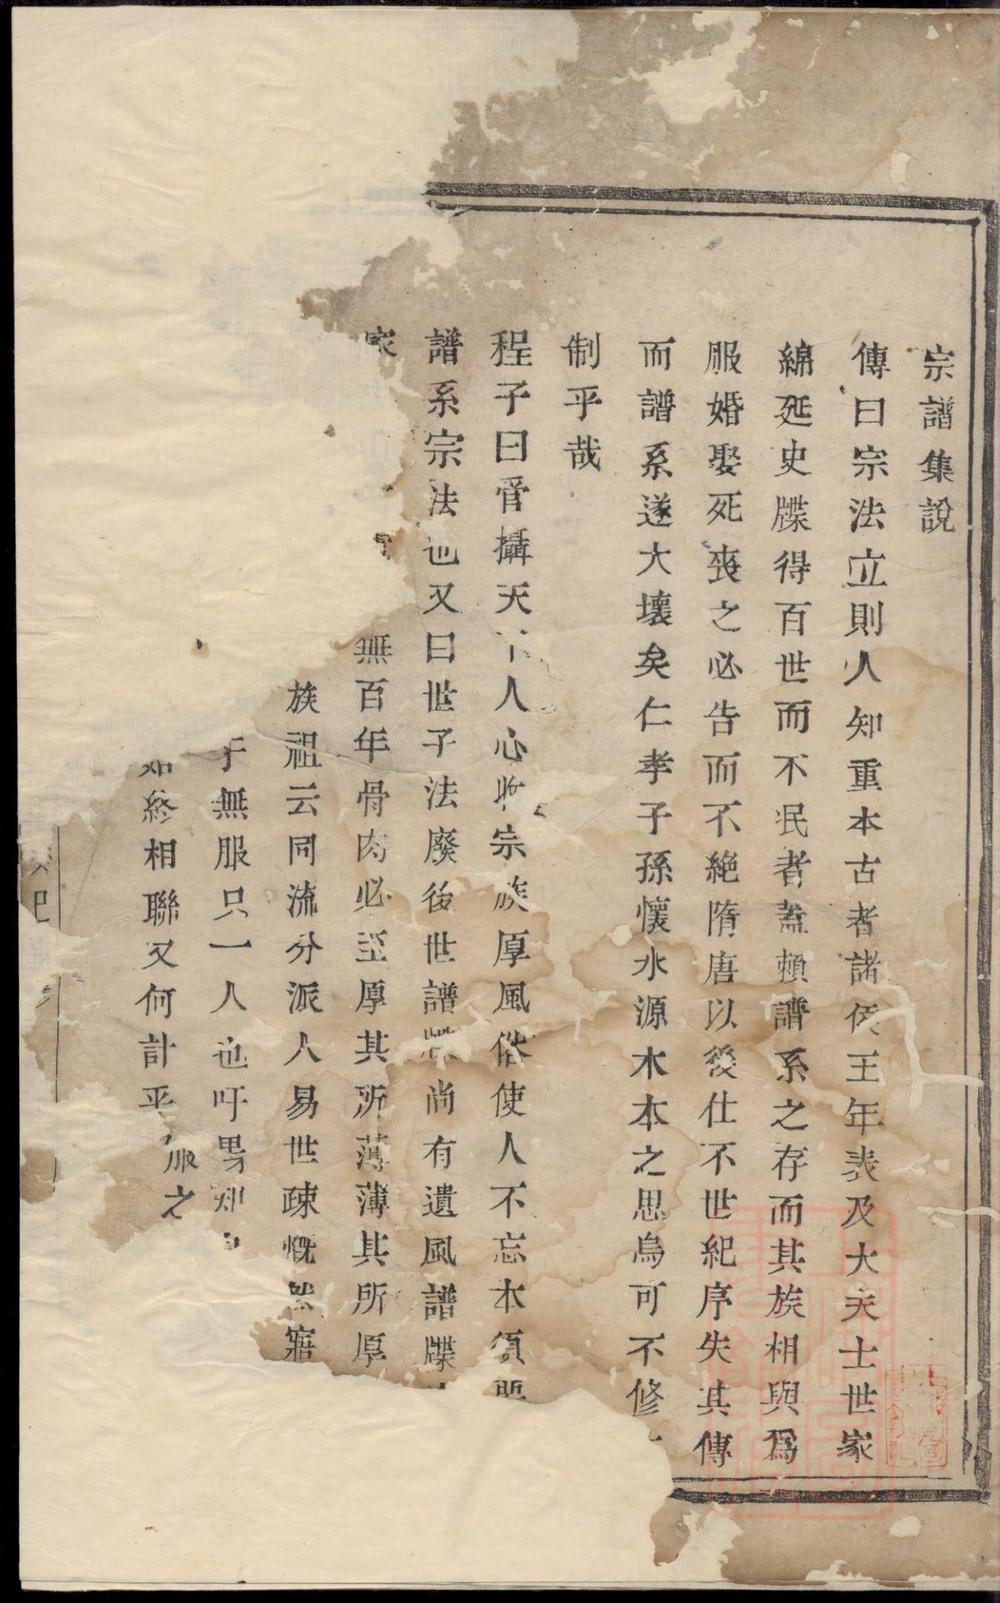 宗譜集說
傳曰宗法立則人知重本古者諸侯王年表及大夫士世家
綿延史牒得百世而不泯者蓋頼譜系之存而其族相與為
服婚娶死喪之必告而不絶隋唐以後仕不世紀序失其傳
而譜系遂大壞矣仁孝子孫懷水源木本之思烏可不修
制乎哉
程子曰管攝天下人心收宗族厚風俗使人不忘本須
譜系宗法也又曰世子法廢後世譜牒尚有遺風譜牒
家
無百年骨肉必至厚其所薄薄其所厚
族祖云同流分派人易世疎慨然寤
于無服只一人也吁男知
如終相聯又何計乎
服之